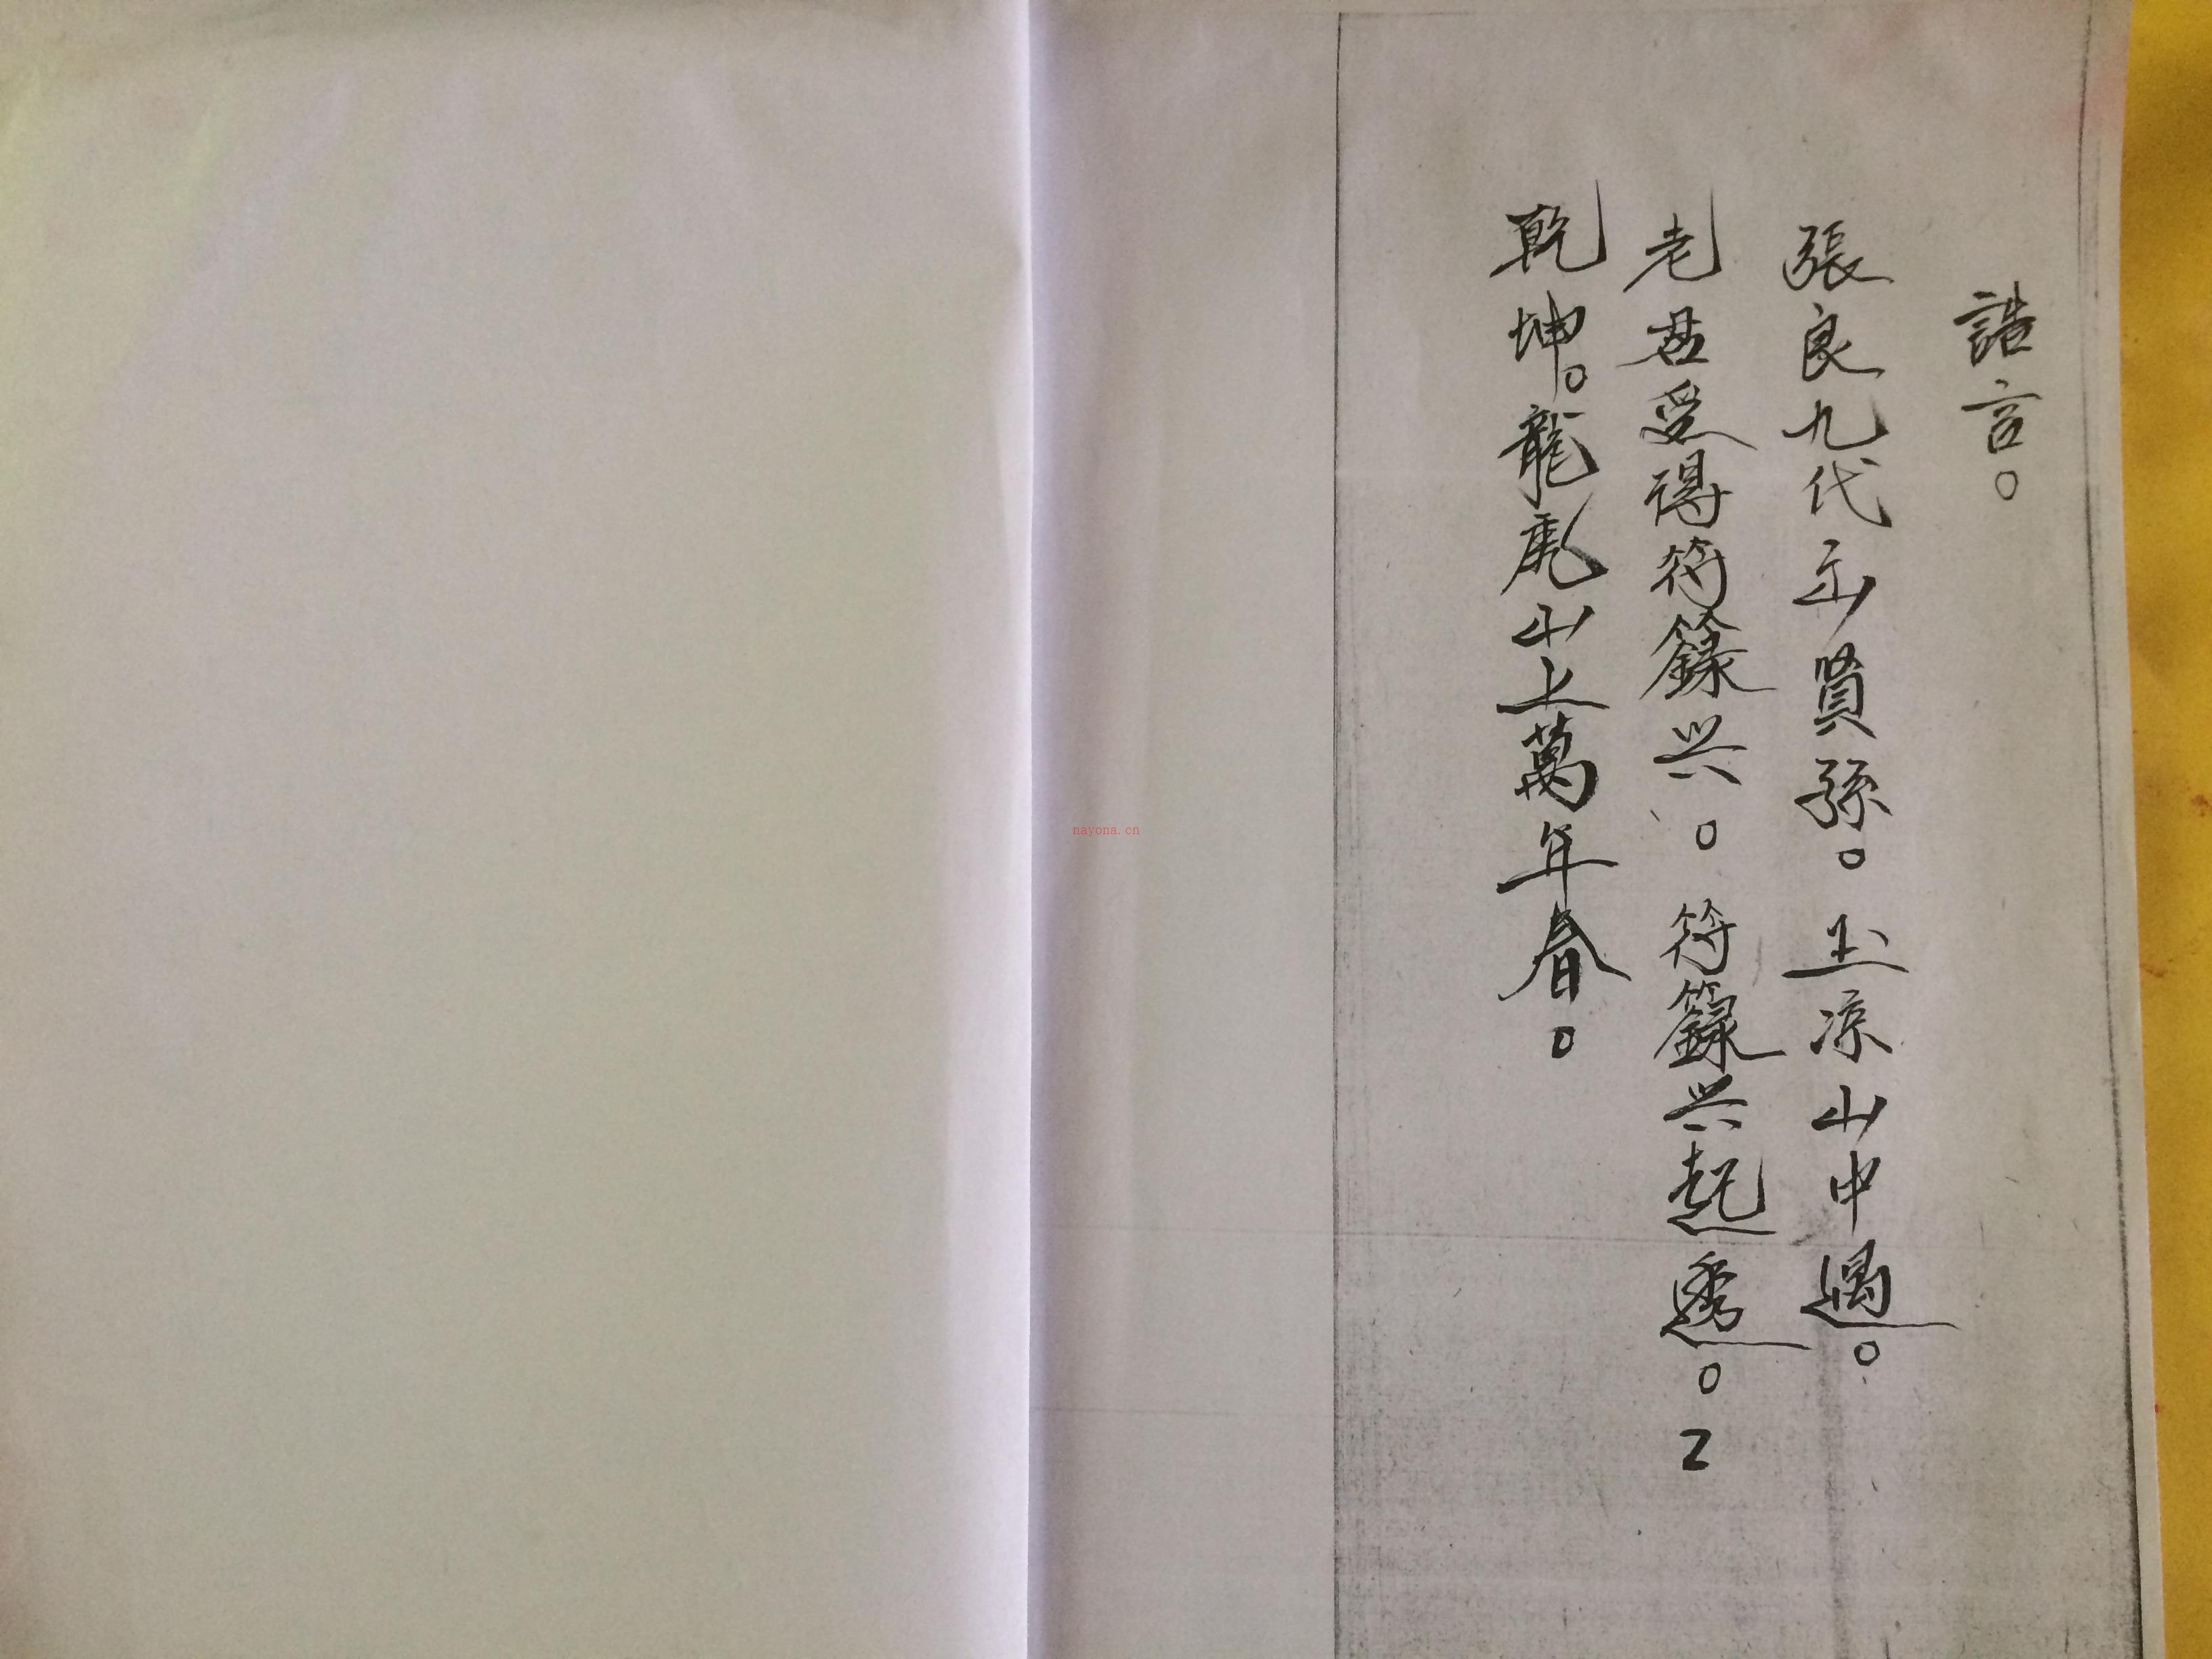 誥言。
張良九代出賢孫。玉凉山中遇。
老君受得符籙兴。符籙兴起透。乙
乾坤。龍虎山上萬年春。
nayona.cn